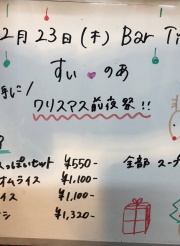 2月23日(木) Bar Ti
すい♥のあ
手に/
クリスマス前夜祭!!
っぽいセット ¥550-
オムライス ¥1,100-
イス ¥1,100-
¥1,320-
全部 スー